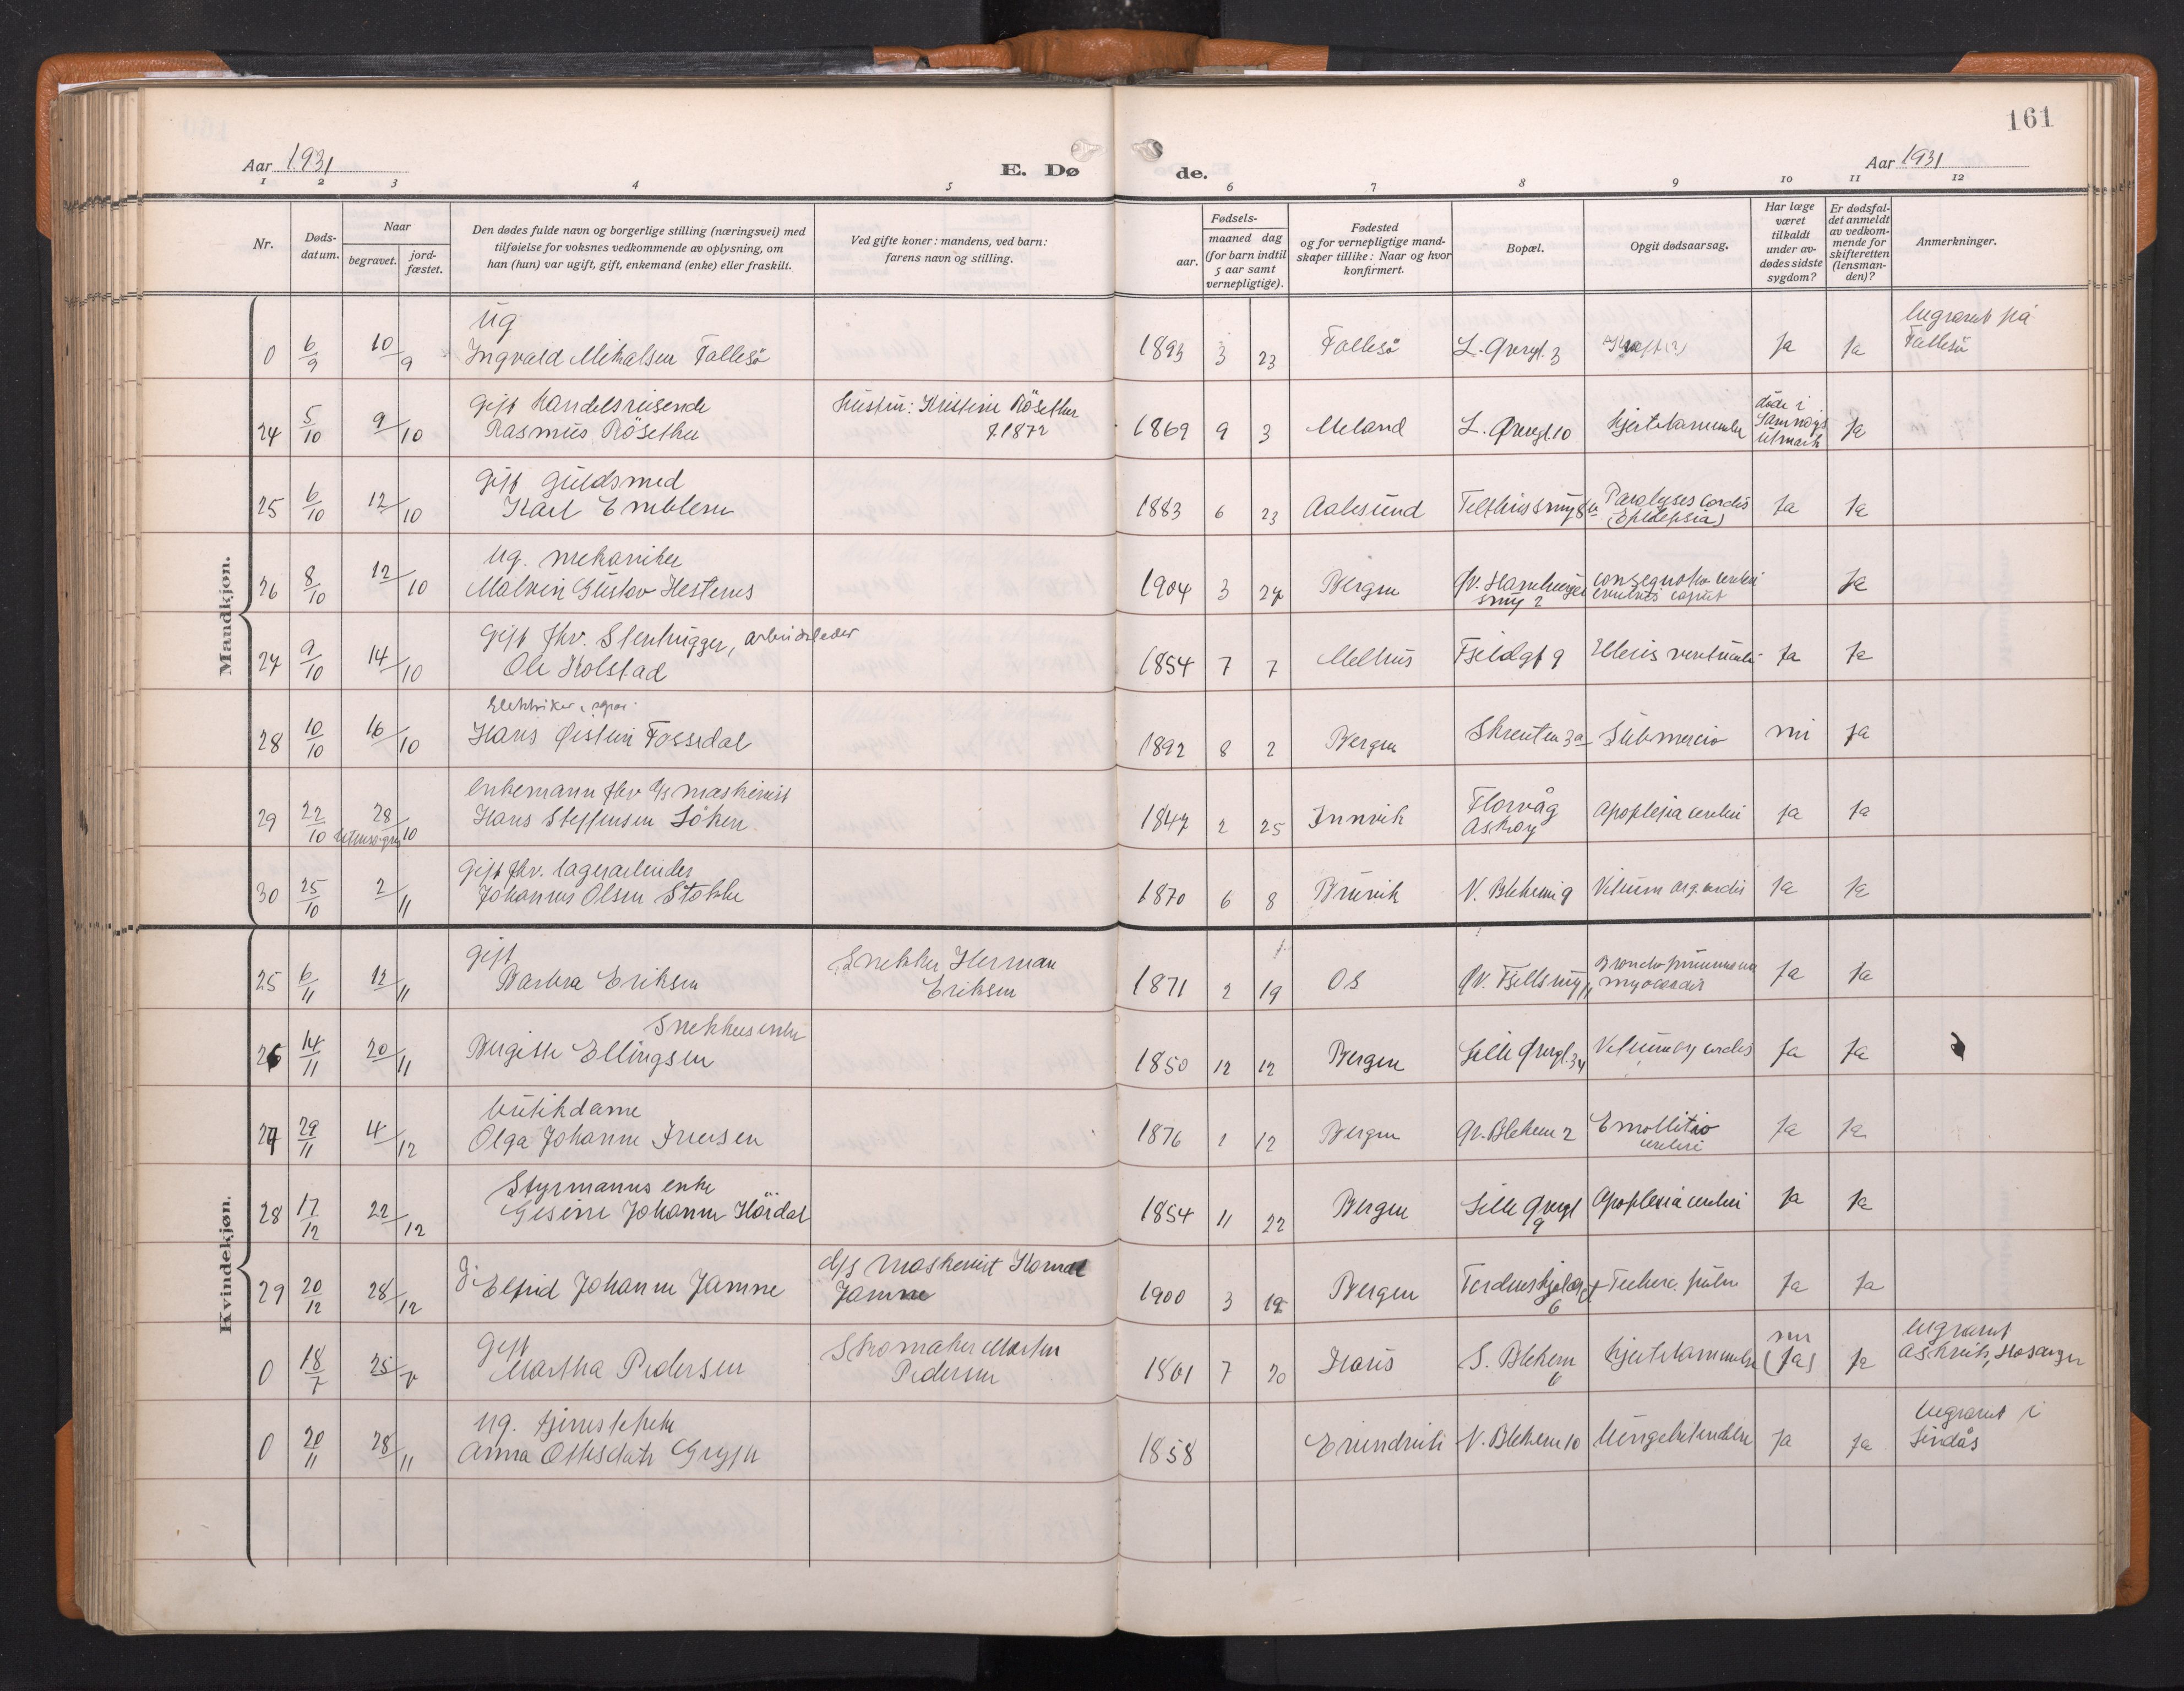 161
Aar 1931
E. Dø
de.
Aar 1931
1 2 3 4 5 6 7 8 9 10 11 12
Nr.
Døds-
datum.
Naar
begravet.
jord-
fæstet.
Den dødes fulde navn og borgerlige stilling (næringsvei) med
tilføielse for voksnes vedkommende av oplysning, om
han (hun) var ugift, gift, enkemand (enke) eller fraskilt.
Ved gifte koner: mandens, ved barn:
farens navn og stilling.
Fødsels-
aar.
maaned dag
(for barn indtil
5 aar samt
vernepligtige).
Fødested
og for vernepligtige mand-
skaper tillike: Naar og hvor
konfirmert.
Bopæl.
Opgit dødsaarsag.
Har læge
været
tilkaldt
under av-
dødes sidste
sygdom?
Er dødsfal-
det anmeldt
av vedkom-
mende for
skifteretten
(lensman-
den)?
Anmerkninger.
Mandkjøn.
ug
0 6/9 10/9 Ingvald Mikalsen Follesö 1893 3 23 Follesö L. Øvregt. 3 Ja Ja
begravet på
Follesö
Gift Handelsreisende
24 5/10 9/10 Rasmus Rösether
Hustru: Kristine Rösether
f. 1872
1869 9 3 Meland L. Øvregt. 10 hjertelammelse
døde i
Samnøy
utmark
Ja
Gift Guldsmed
25 6/10 12/10 Karl Emblem 1883 6 23 Aalesund Telthussmug 8b
Paralyses Cordis
(Epilepsia)
Ja Ja
ug. mekaniker
26 8/10 12/10 Malvin Gustav Hestenes 1904 3 24 Bergen
Øv. Hamburger
smug 2
Ja
Gift fhv. Stenhugger, arbeidsleder
27 9/10 14/10 Ole Holstad 1854 7 7 Melhus Fjeldgt 9 Ulcus ventriculi Ja Ja
Elektriker
28 10/10 16/10 Hans Øistein Fossdal 1892 8 2 Bergen Skreuten 3a Submercio nei Ja
enkemann fhv d/s maskinist
29 22/10 28/10 Hans Steffensen Löken 1847 2 25 Innvik
Florvåg
Askøy
Apoplexia cerebri Ja Ja
Gift fhv. lagerarbeider
30 25/10 2/11 Johannes Olsen Stokke 1870 6 8 Bruvik N. Blekevei 9 Vitium org. cordis Ja Ja
Kvindekjøn.
gift
25 6/11 12/11 Barbra Eriksen
Snekker Herman
Eriksen
1871 2 19 Os Øv. Fjellsmug 11
Broncho pneumonia
myocardit
Ja Ja
Snekkers enke
26 14/11 20/11 Birgitte Ellingsen 1850 12 12 Bergen Lille Øvregt. 34 Vitium org cordis Ja Ja
butikdame
27 29/11 4/12 Olga Johanne Iversen 1876 1 12 Bergen Øv. Blekevei 2
Emollitio
cerebri
Ja Ja
Styrmanns enke
28 17/12 22/12 Gesine Johanne Hördal 1854 11 22 Bergen
Lille Øvregt
9
Apoplexia cerebri Ja Ja
29 20/12 28/12 Elfrid Johanne Jamne
d/s maskinist Konrad
Jamne
1900 3 19 Bergen
Tordenskjoldsgt
6
Tuberc. pulm Ja Ja
Gift
0 18/7 25/7 Martha Pedersen
Skomaker Morten
Pedersen
1861 7 20 Haus
S. Blekevei
6
hjertelammelse
nei
(Ja)
Ja
begravet
Askvik, Hosanger
ug. tjenestepike
0 20/11 28/11 Anna Ottesdatr 1858 Eivindvik N. Blekevei 10 lungebetendelse Ja Ja
begravet i
Lindås